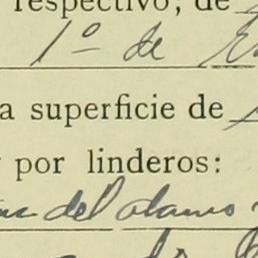 respectivo, de
1º de
a superficie de
por linderos:
del alamo